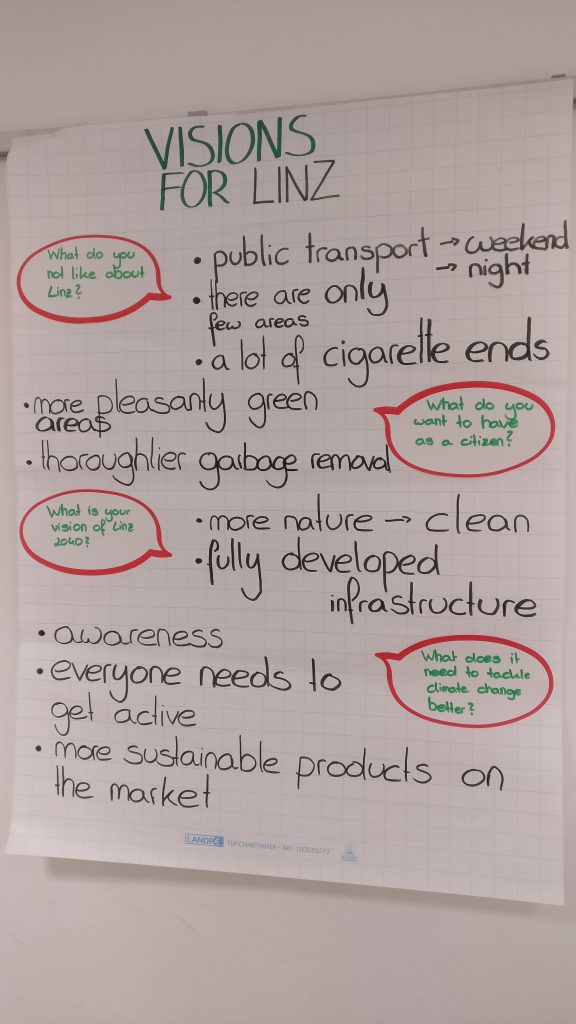 VISIONS
FOR LINZ
What do you
not like about
Linz?
• public transport → weekend
→ night
• there are only
few areas
• a lot of cigarette ends
• more pleasantly green
areas
What do you
want to have
as a citizen?
• thoroughlier garbage removal
What is your
vision of Linz
2040?
• more nature → clean
• fully developed
infrastructure
• awareness
• everyone needs to
get active
What does it
need to tackle
climate change
better?
• more sustainable products on
the market
LANDRÉ TOP-CHARTPAPIER • ART. 100050592